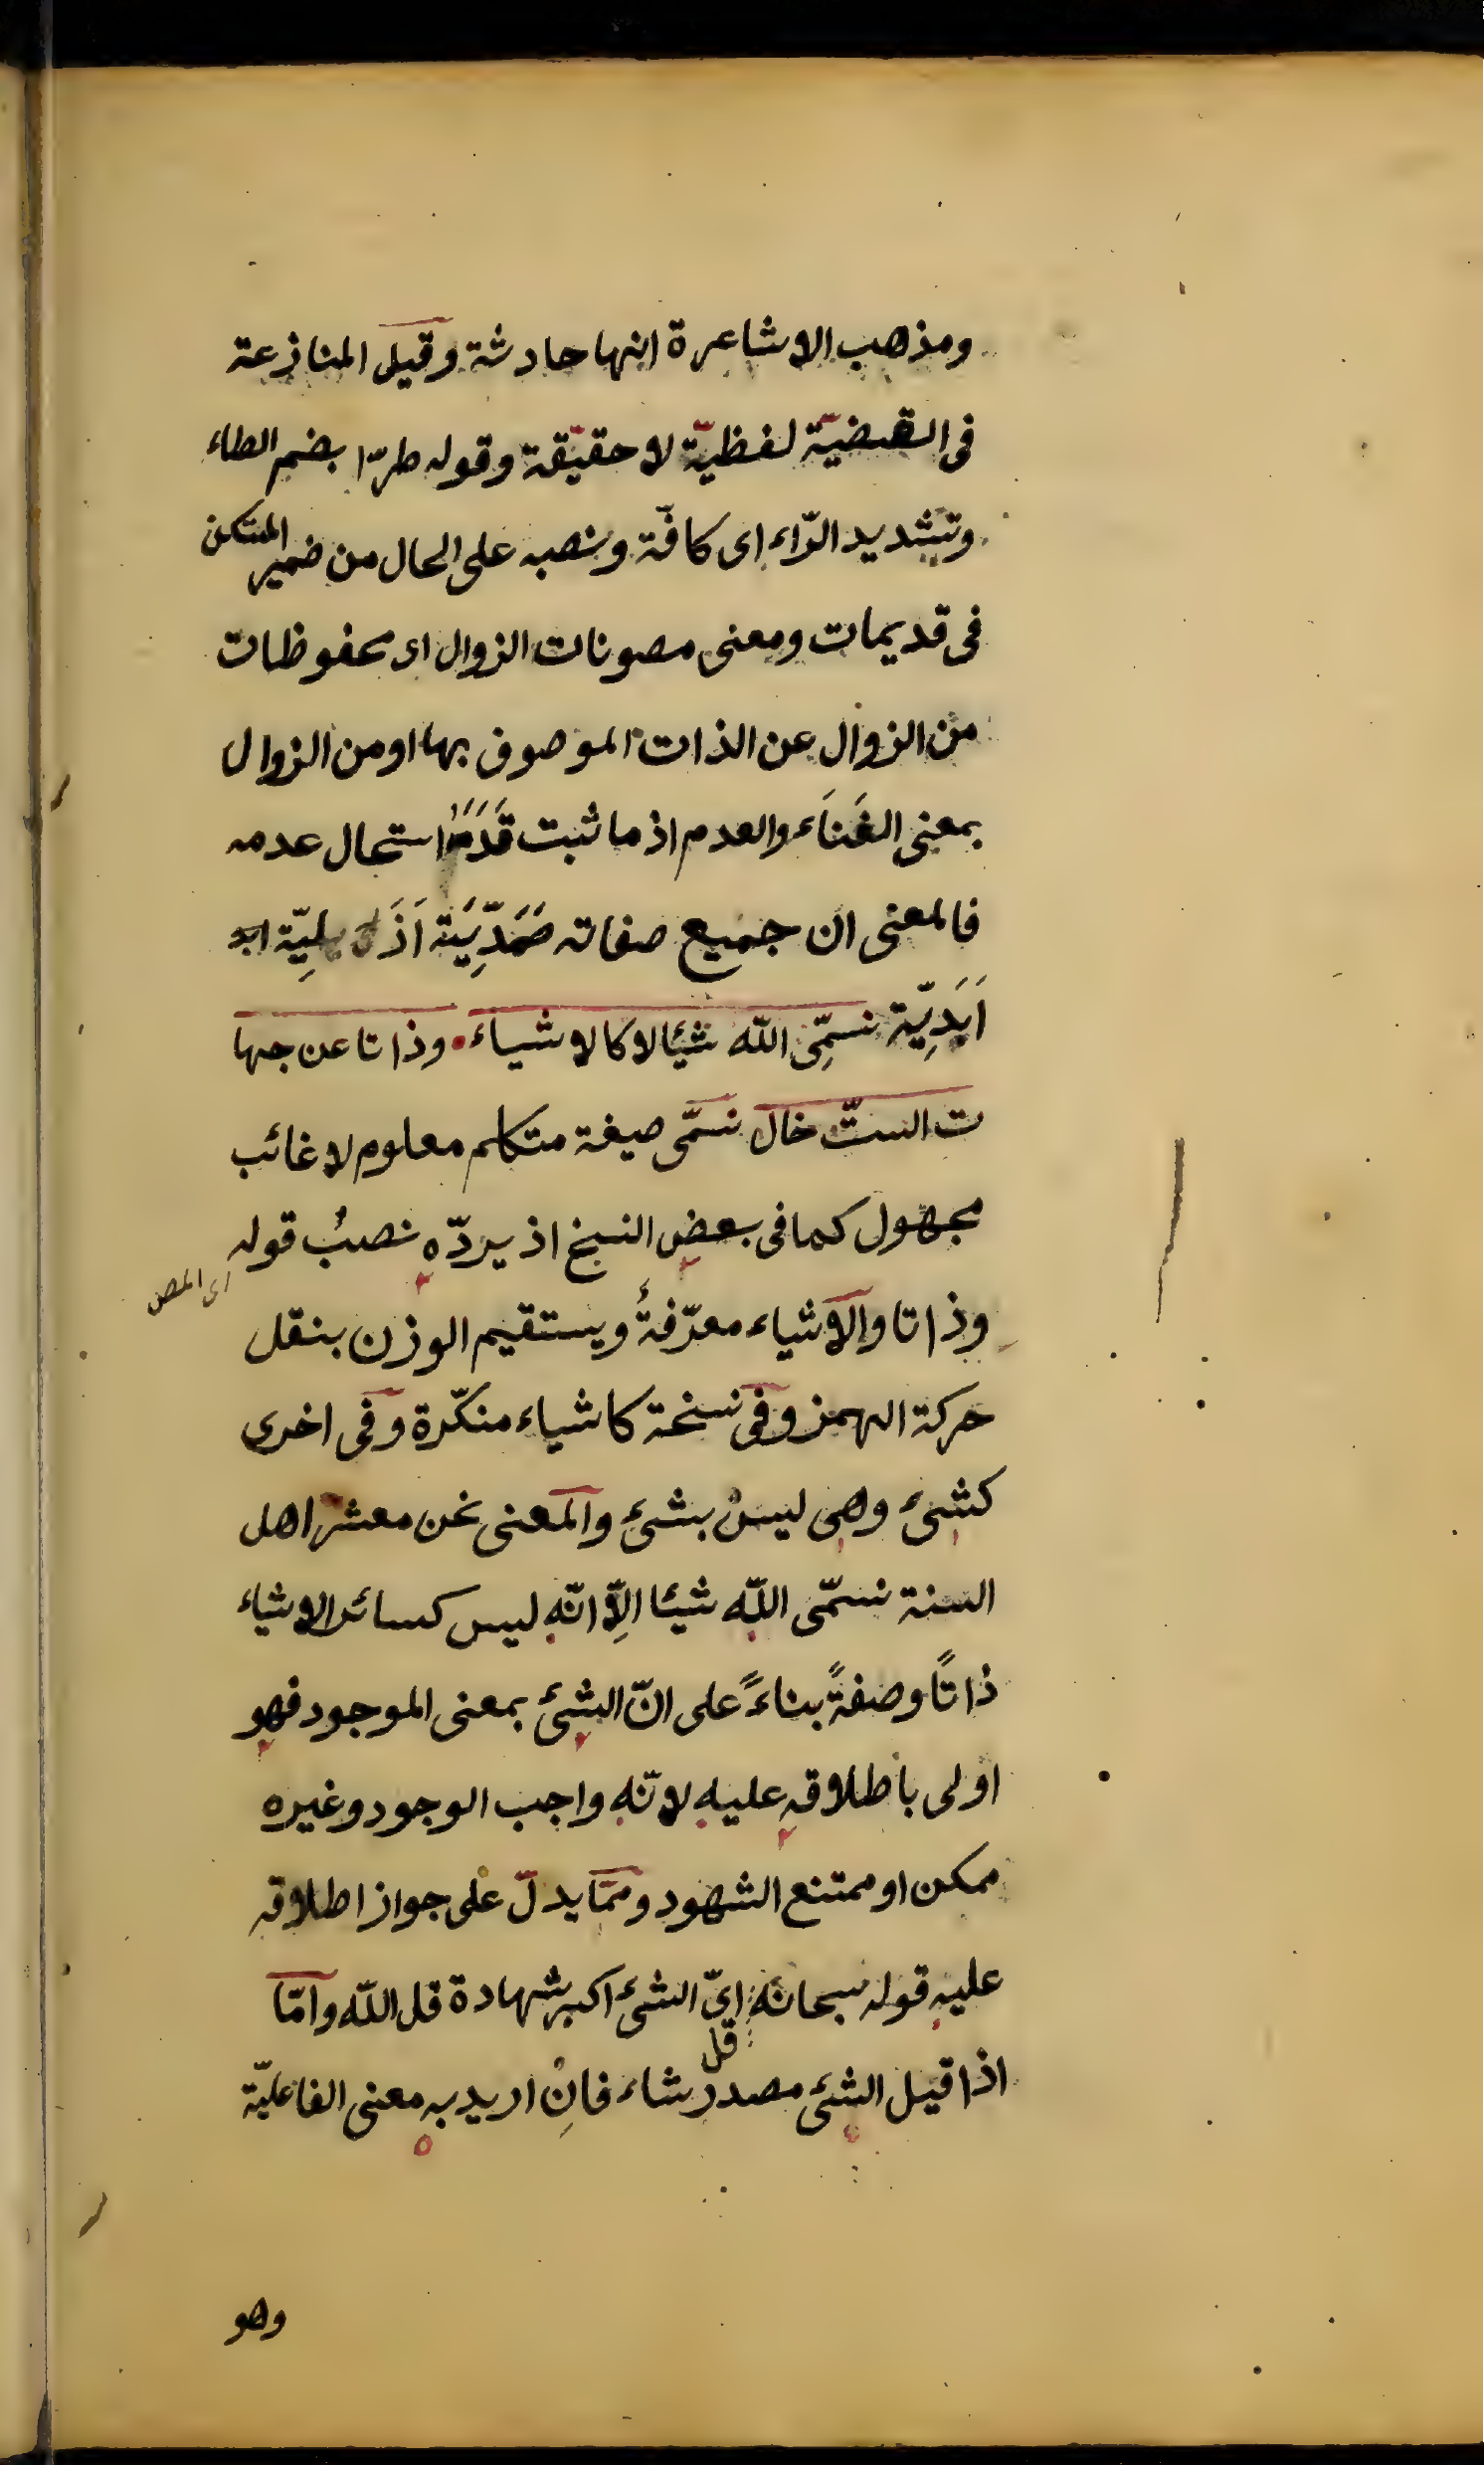 ومذهب الاشاعرة انها حادثة وقيل المنازعة
فى القضيّة لفظيّة لا حقيقة وقوله طرّا بضم الطاء
وتشديد الرّاء اى كافّة ونصبه على الحال من ضمير المستكن
فى قديمات ومعنى مصونات الزوال اى محفوظات
من الزوال عن الذات الموصوف بها او من الزوال
بمعنى الفَنَاء والعدم اذ ما ثبت قَدَمُهُ استحال عدمه
فالمعنى ان جميع صفاته صَمَدِّيَة اَزَلِيّة
اَبَدِيّة نسمِّى اللّه شيًا لا كالاشياء وذاتا عن جها
ت الستّ خال نسمّى صيغة متكلم معلوم لا غائب
مجهول كما فى بعض النسخ اذ يردّه نصبُ قوله
اى المص
وذاتا والاشياء معرّفةً ويستقيم الوزن بنقل
حركة الهمز وفى نسخة كاشياء منكّرة وفى اخرى
كشئ وهى ليسن بشئ والمعنى نحن معشر اهل
السنة نسمّى اللّه شيًا اِلّا انّه ليس كسائر الاشياء
ذاتًا وصفةً بناءً على انّ الشئ بمعنى الموجود فهو
اولى باطلاقه عليه لانّه واجب الوجود وغيره
ممكن او ممتنع الشهود وممّا يدلّ على جواز اطلاقه
عليه قوله سبحانه قل اىّ الشئ اكبر شهادة قل اللّه وامّا
اذا قيل الشئ مصدر شاء فاِنْ اريد به معنى الفاعليّة
وهو